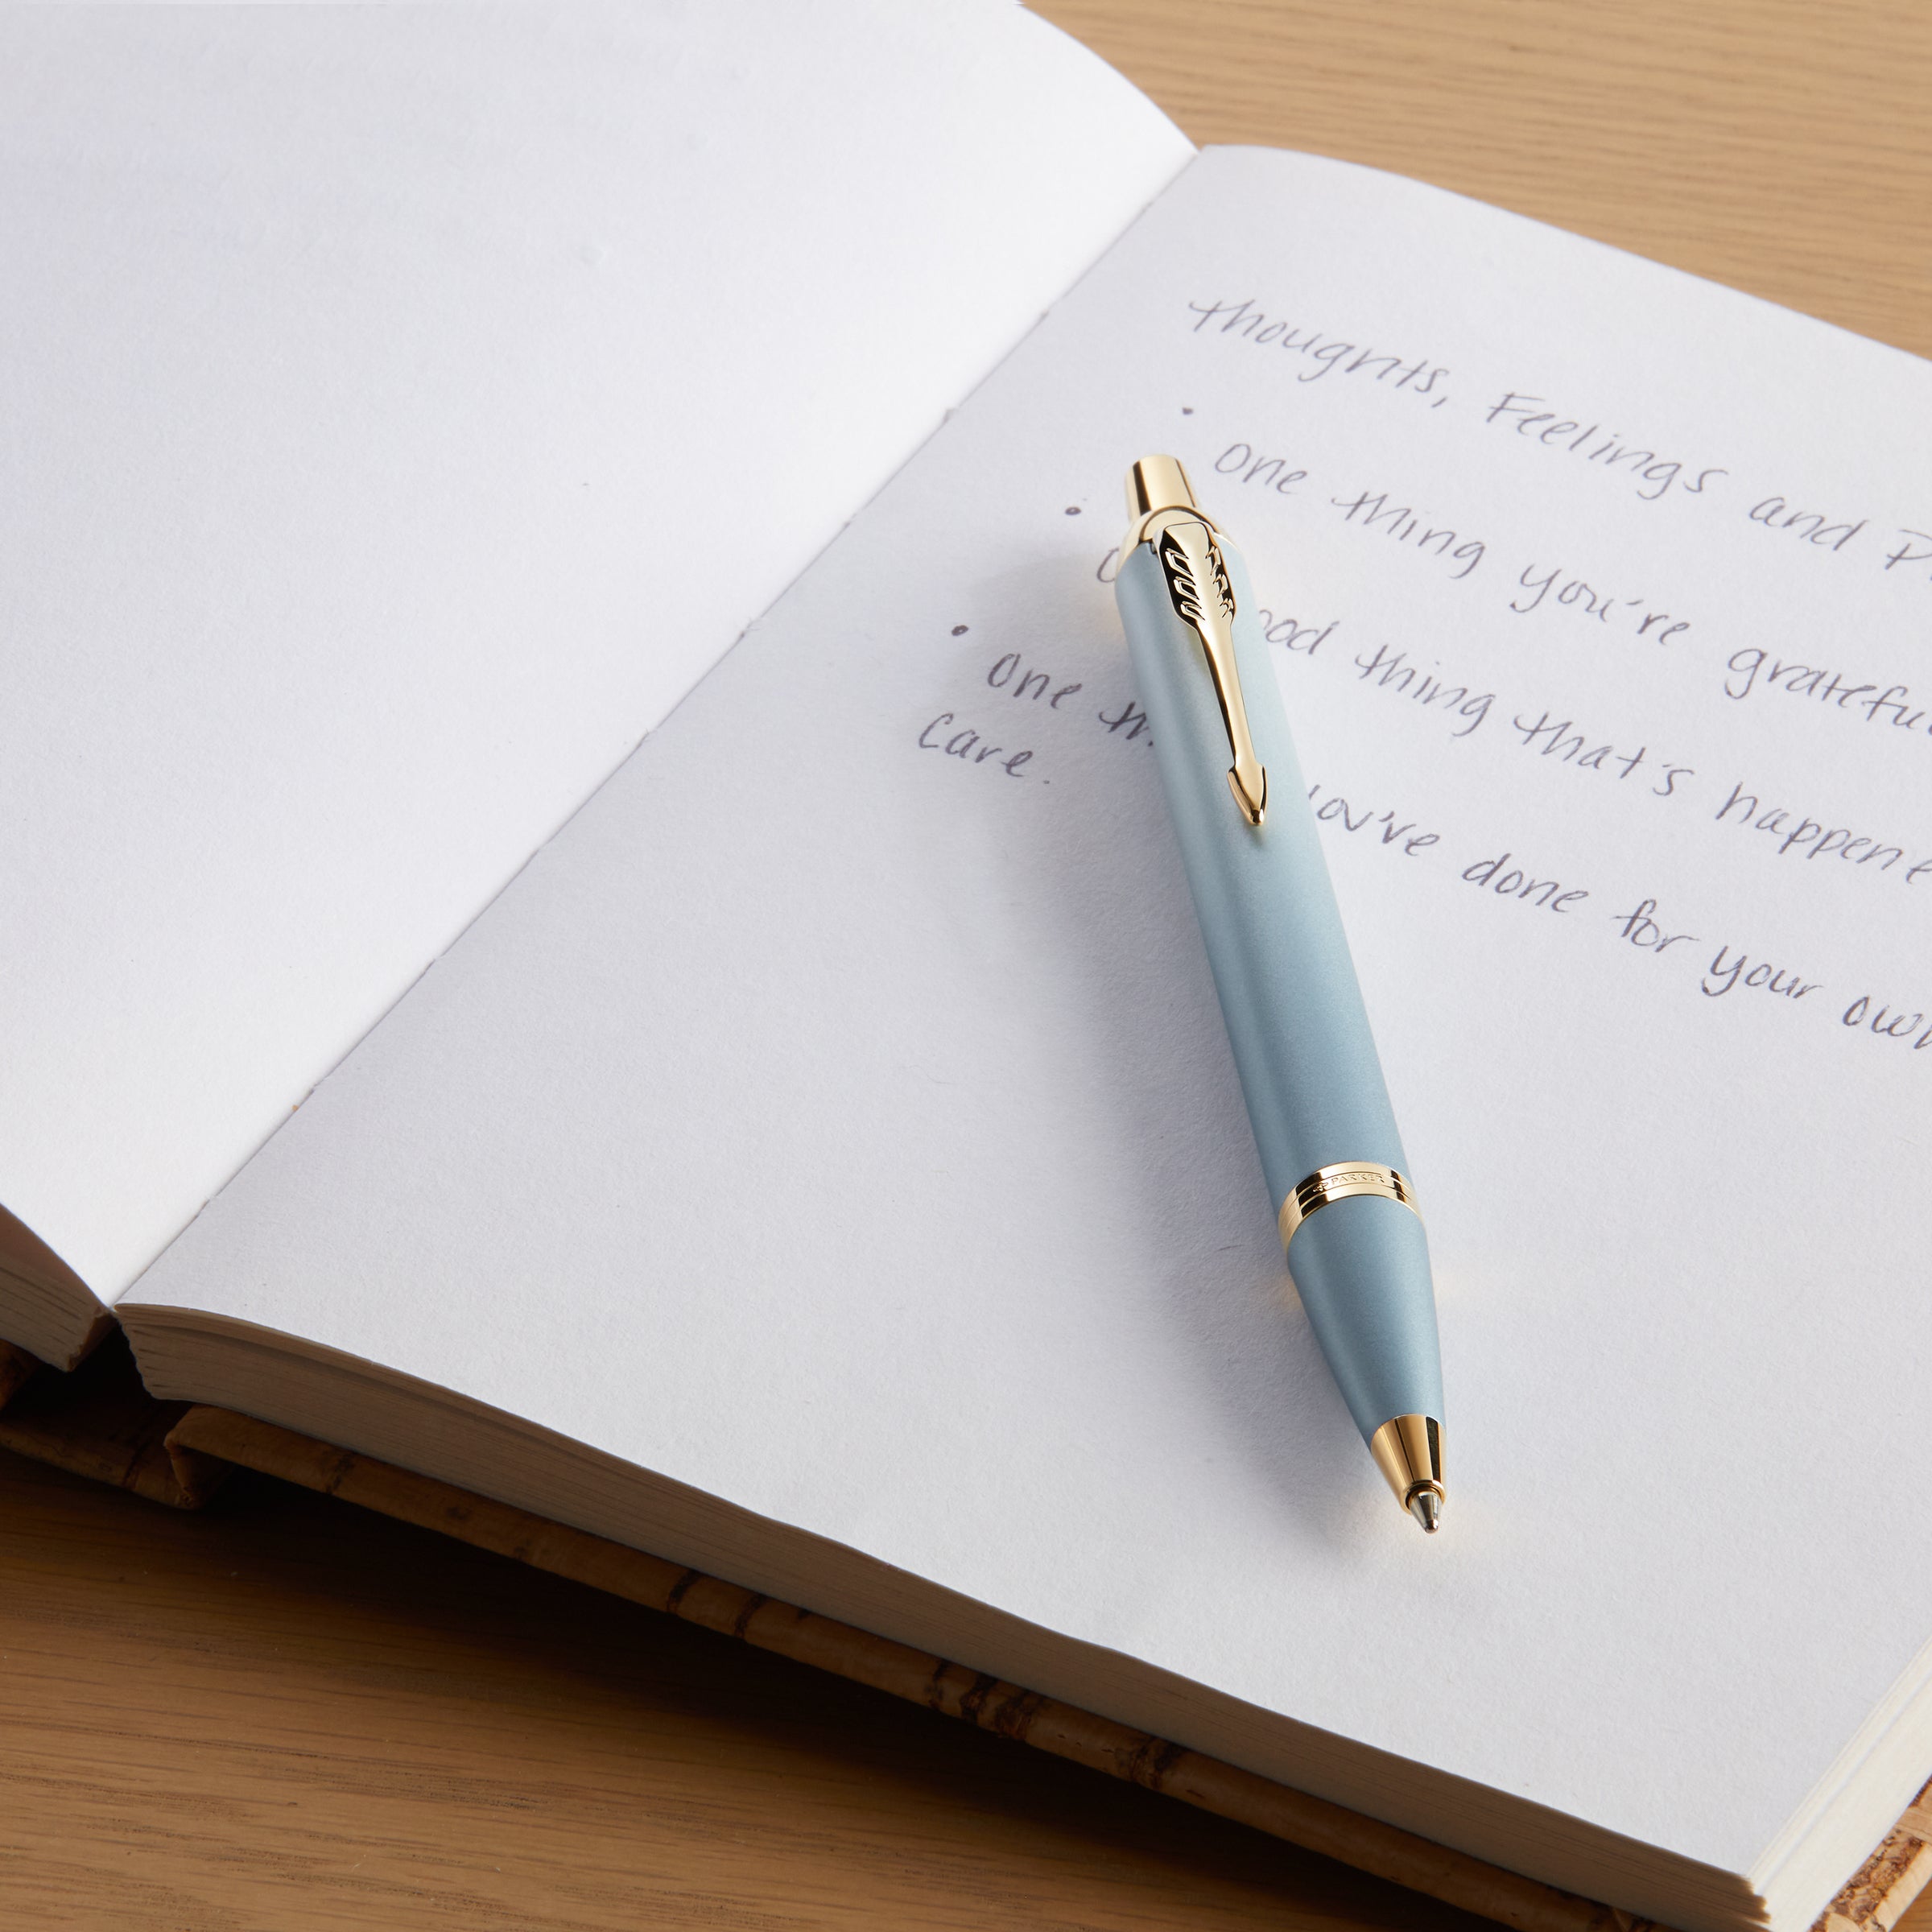 Thoughts, Feelings and
• one thing you're
• good thing that's
• one you've done for your
care.
PARKER